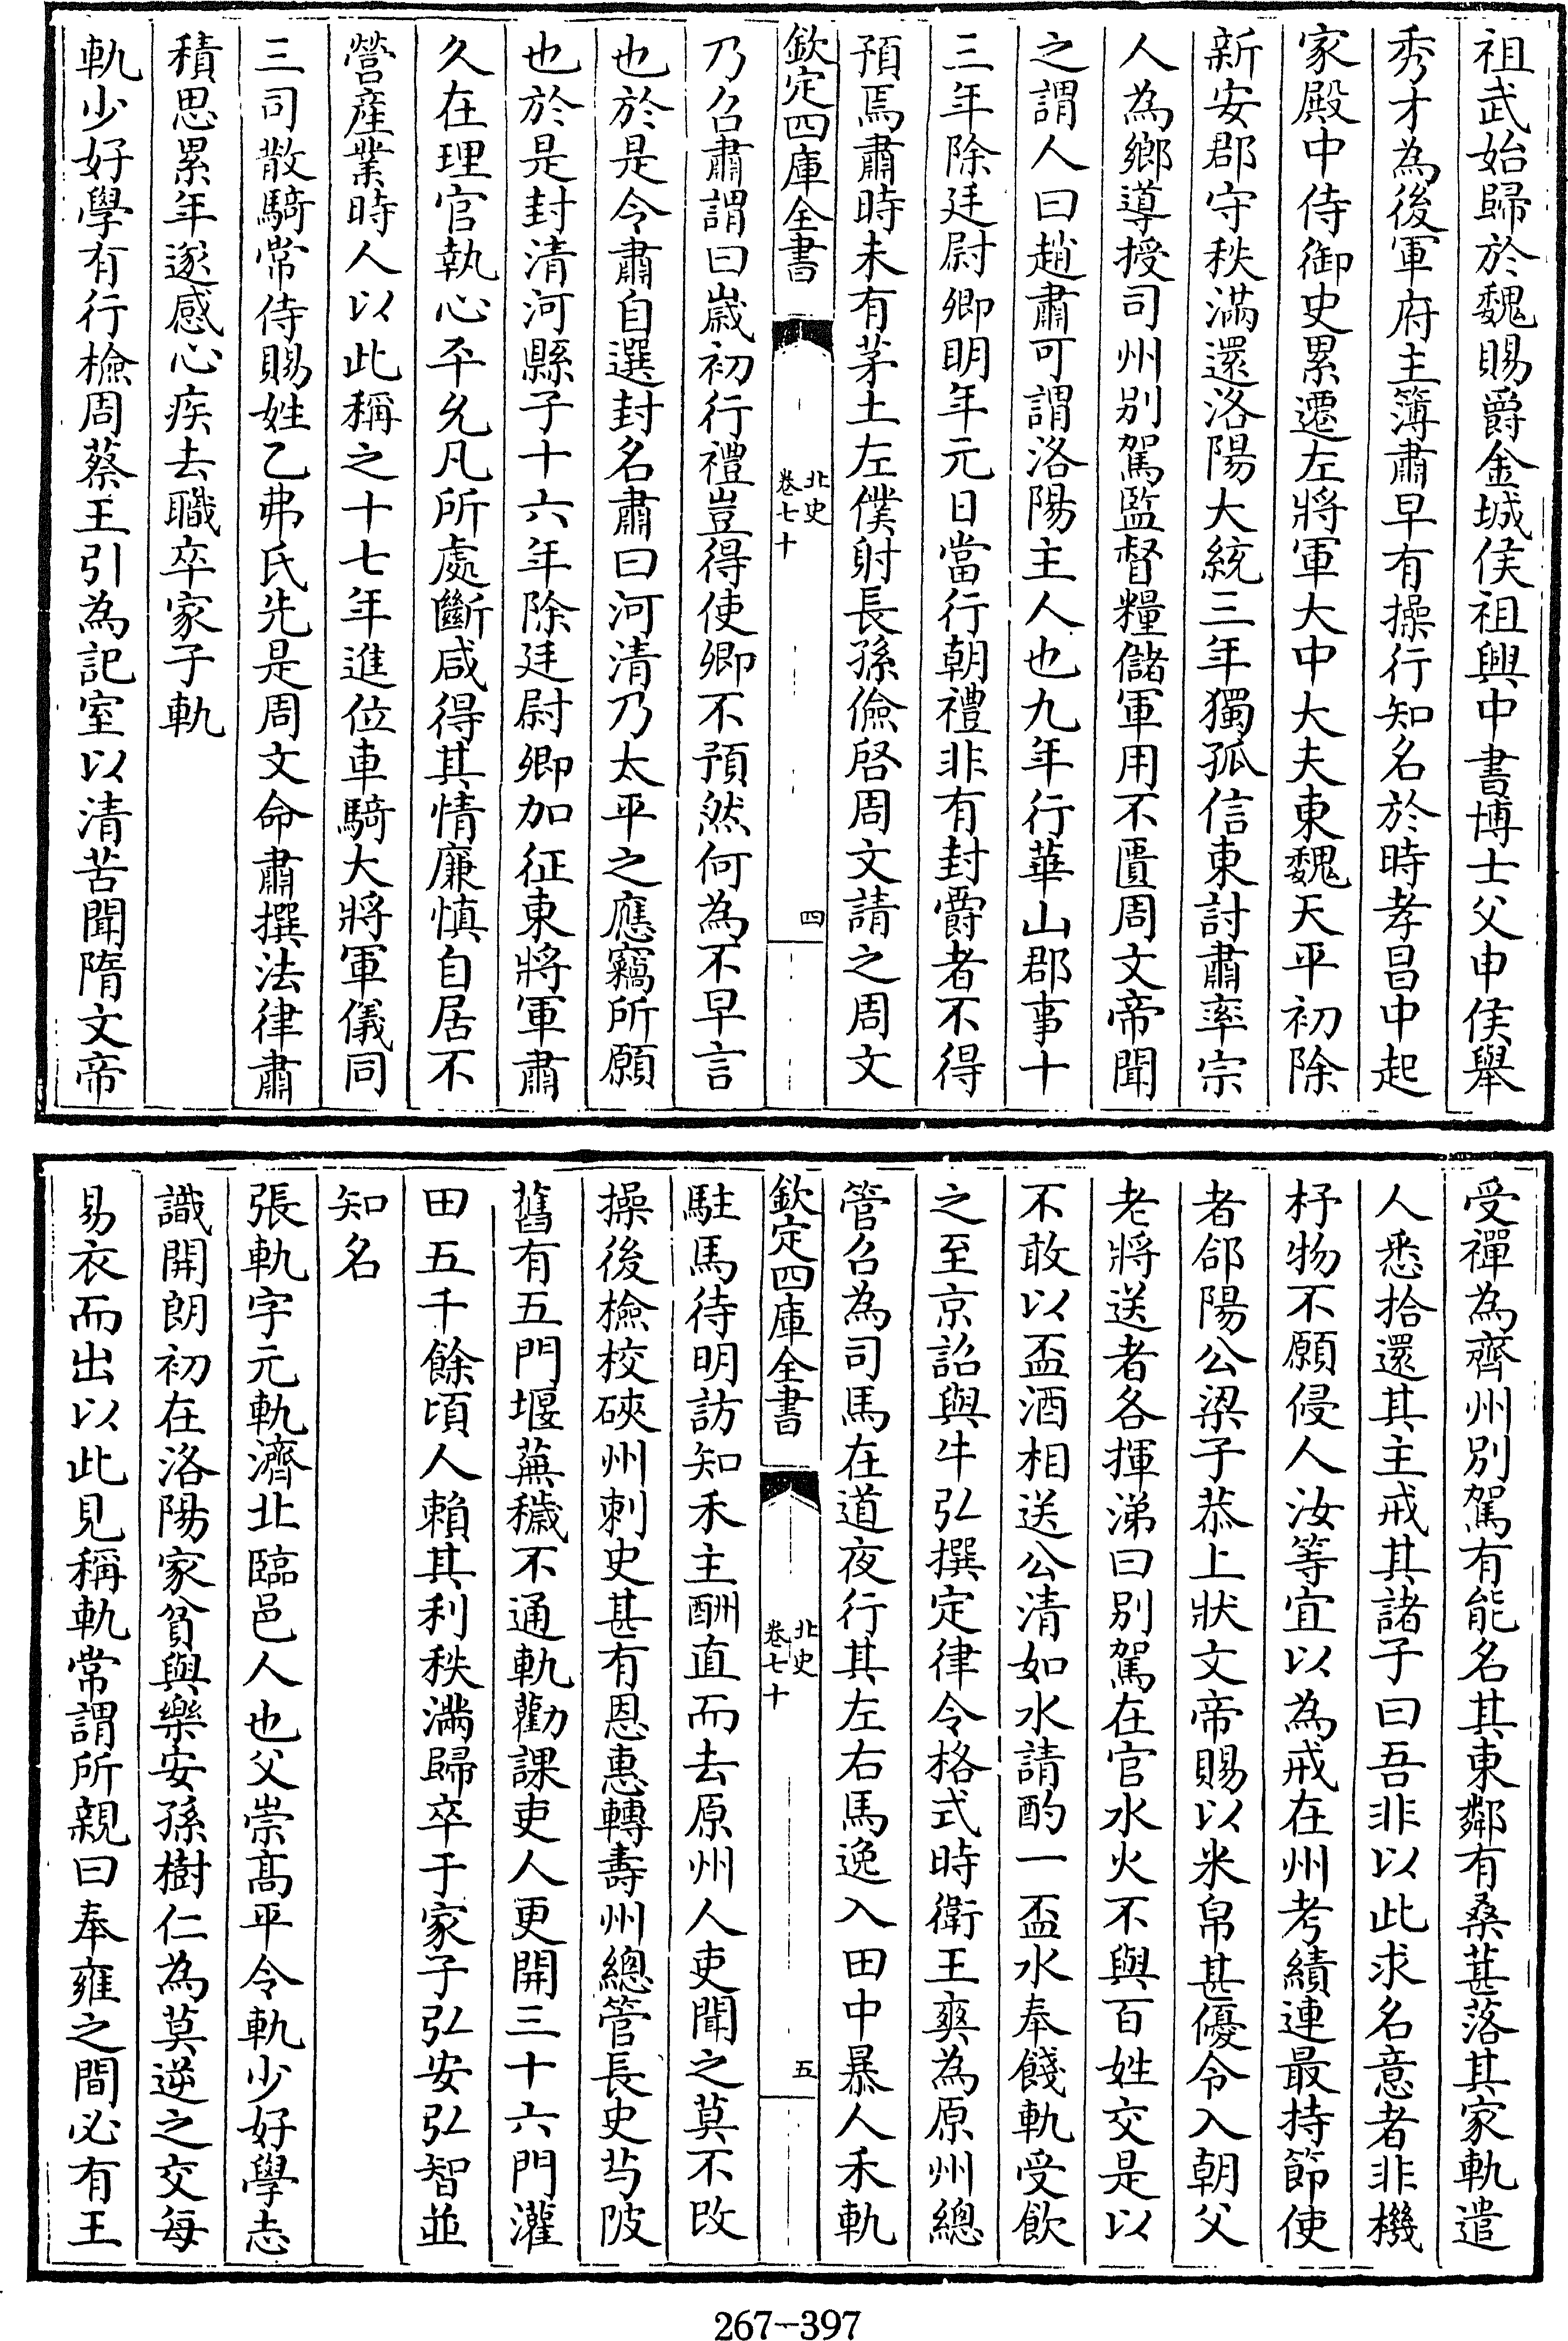 祖武始歸於魏賜爵金城侯祖興中書博士父申侯舉
秀才為後軍府主簿肅早有操行知名於時孝昌中起
家殿中侍御史累遷左將軍大中大夫東魏天平初除
新安郡守秩滿還洛陽大統三年獨孤信東討肅率宗
人為鄉導授司州別駕監督糧儲軍用不匱周文帝聞
之謂人曰趙肅可謂洛陽主人也九年行華山郡事十
三年除廷尉卿明年元日當行朝禮非有封爵者不得
預焉肅時未有茅土左僕射長孫儉啓周文請之周文
欽定四庫全書
北史
卷七十
四
乃召肅謂曰嵗初行禮豈得使卿不預然何為不早言
也於是令肅自選封名肅曰河清乃太平之應竊所願
也於是封清河縣子十六年除廷尉卿加征東將軍肅
久在理官執心平允凡所處斷咸得其情廉慎自居不
營産業時人以此稱之十七年進位車騎大將軍儀同
三司散騎常侍賜姓乙弗氏先是周文命肅撰法律肅
積思累年遂感心疾去職卒家子軌
軌少好學有行檢周蔡王引為記室以清苦聞隋文帝
受禪為齊州別駕有能名其東鄰有桑葚落其家軌遣
人悉拾還其主戒其諸子曰吾非以此求名意者非機
杼物不願侵人汝等宜以為戒在州考績連最持節使
者郃陽公梁子恭上狀文帝賜以米帛甚優令入朝父
老將送者各揮涕曰別駕在官水火不與百姓交是以
不敢以盃酒相送公清如水請酌一盃水奉餞軌受飲
之至京詔與牛弘撰定律令格式時衛王爽為原州總
管召為司馬在道夜行其左右馬逸入田中暴人禾軌
欽定四庫全書
北史
卷七十
五
駐馬待明訪知禾主酬直而去原州人吏聞之莫不改
操後檢校硤州刺史甚有恩惠轉壽州總管長史芍陂
舊有五門堰蕪穢不通軌勸課吏人更開三十六門灌
田五千餘頃人賴其利秩滿歸卒于家子弘安弘智並
知名
張軌字元軌濟北臨邑人也父崇髙平令軌少好學志
識開朗初在洛陽家貧與樂安孫樹仁為莫逆之交每
易衣而出以此見稱軌常謂所親曰奉雍之間必有王
267-397